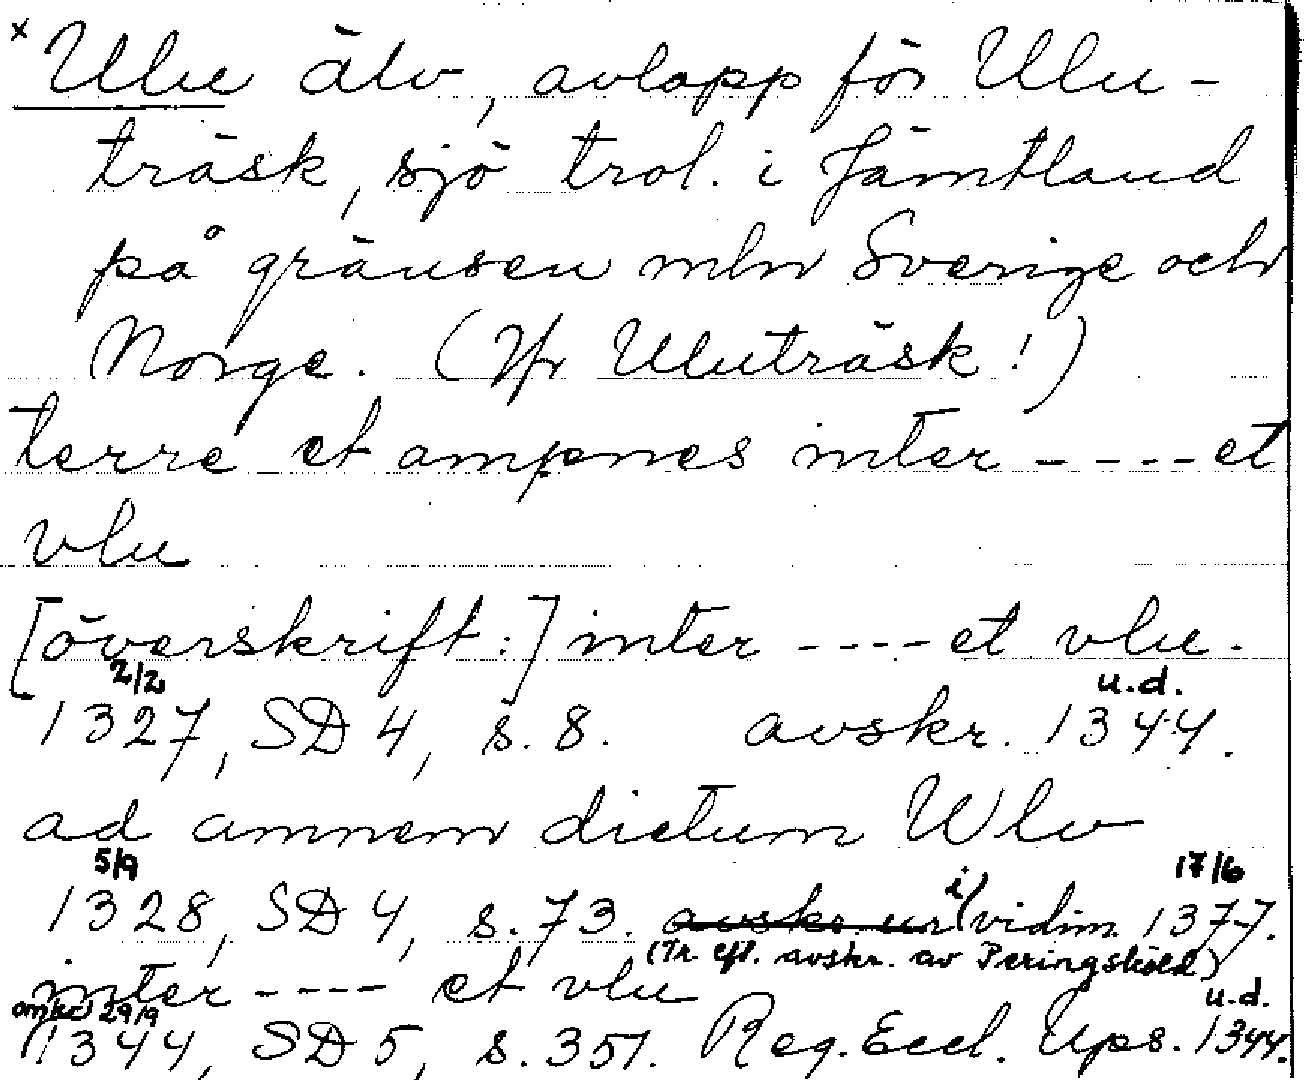 x Ulu älv, avlopp för Ulu-
träsk, sjö trol. i Jämtland
på gränsen mln Sverige och
Norge. (Jfr Uluträsk!)
terre et ampnes inter ---- et
vlu
[överskrift:] inter ---- et vlu.
2/2 u.d.
1327, SD 4, s. 8. avskr. 1344.
ad amnem dictum Wlv
5/9 17/6
1328, SD 4, s. 73. avskr. ur i vidim. 1377.
(Tr. eft. avskr. av Peringskiöld)
inter ---- et vlu
omkr 29/9 u.d.
1344, SD 5, s. 351. Reg. Eccl. Ups. 1344.